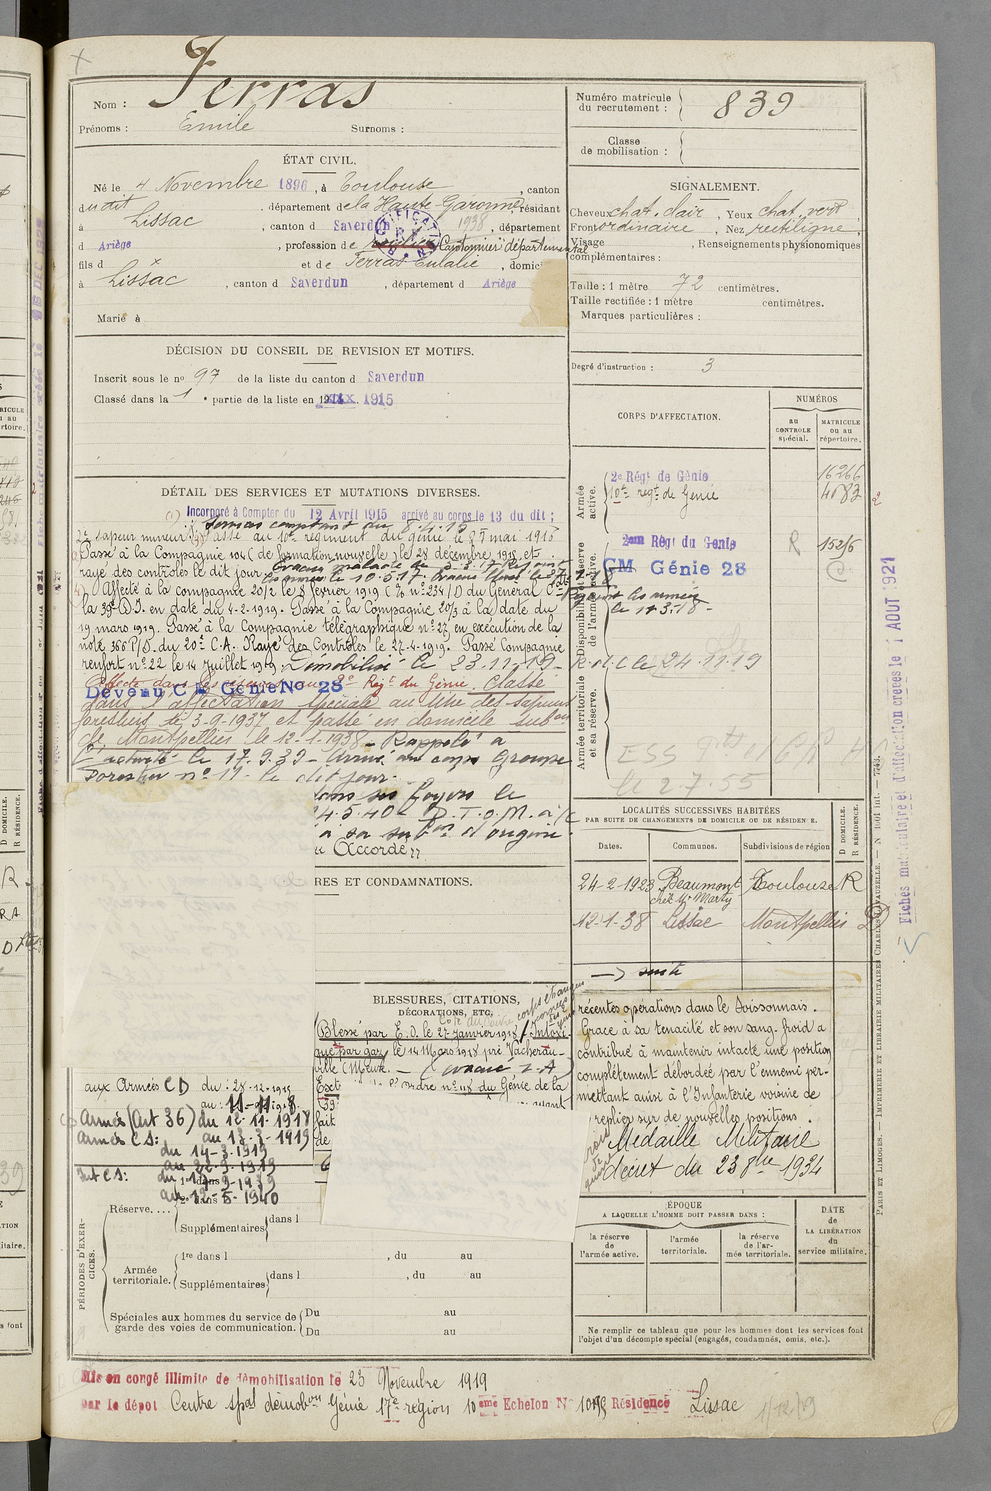 Nom : Ferras
Prénoms : Emile Surnoms :
ÉTAT CIVIL.
Né le 4 Novembre 1896, à Toulouse, canton
dudit, département de la Haute-Garonne, résidant
à Lissac, canton d Saverdun 1938, département
d Ariège, profession de Cantonnier départemental
fils d x et de Ferras Eulalie, domicilié
à Lissac, canton d Saverdun, département d Ariège
Marié à
DÉCISION DU CONSEIL DE REVISION ET MOTIFS.
Inscrit sous le no 97 de la liste du canton d Saverdun
Classé dans la 1e partie de la liste en 1915
DÉTAIL DES SERVICES ET MUTATIONS DIVERSES.
Incorporé à Compter du 12 Avril 1915 arrivé au corps le 13 du dit ;
2e sapeur mineur. Passé au 10e régiment du génie le 25 mai 1915
Passé à la Compagnie 10/4 (de formation nouvelle) le 28 décembre 1915 et
rayé des contrôles le dit jour. Evacué malade le 3.3.17 Rejoint
les armées le 10.5.17. Evacué blessé le 27.1.18
Rejoint les armées
le 17.3.18 -
Affecté à la compagnie 20/2 le 8 février 1919 (No no 234/D du Général Ct
la 39e D.I. en date du 4-2-1919. Passé à la Compagnie 20/3 à la date du
19 mars 1919. Passé à la Compagnie télégraphique no 27 en exécution de la
note 366 P/D. du 20e C.A. Rayé des Contrôles le 27-4-1919. Passé Compagnie
renfort no 22 le 14 Juillet 1919. Démobilisé le 23.11.19 - R.d.C le 24.11.19
Affecté dans les réserves au 2e Régt du Génie. Classé
Devenu CM Génie No 28
dans l'affectation spéciale au titre des sapeurs
forestiers le 3-9-1937 et passé en domicile subon
de Montpellier le 12-1-1938 - Rappelé à
l'activité le 17.9.39 - Arrivé au corps Groupe
Forestier no 17 le dit jour.
dans ses foyers le
14.5.40 - D.T.O.M. a/c
à sa subon d'origine.
Accordé
RES ET CONDAMNATIONS.
BLESSURES, CITATIONS,
DÉCORATIONS, ETC.
Blessé par E.O. le 27 janvier 1918 / Intoxi-
qué par gaz le 14 Mars 1918 près Vacherau-
ville (Meuse. - (évacué I.A)
Ext l'ordre no 118 du Génie de la
39
fait
de
ayant
récentes opérations dans le Soissonnais.
Grâce à sa ténacité et son sang-froid a
contribué à maintenir intacte une position
complètement débordée par l'ennemi per-
mettant ainsi à l'Infanterie voisine de
replier sur de nouvelles positions.
Médaille Militaire
décret du 23 8bre 1934
aux Armées CD du : 28-12-1915
au : 11-11-18
Armées (Art 36) du 12-11-1918
Armées CS: au 13-3-1919
du 14-3-1919
au 22-9-1919
Int CS: du 17-9-1939
au 12-5-1940
PÉRIODES D'EXERCICES.
Réserve....
Supplémentaires dans l
Armée territoriale.
1re dans l , du au
Supplémentaires dans l , du au
Spéciales aux hommes du service de garde des voies de communication.
Du au
Du au
Mis en congé illimité de démobilisation le 23 Novembre 1919
par le dépôt Centre spal démobon Génie 17e région 10ème Echelon No Résidence Lissac
1/12/19
Numéro matricule
du recrutement : 839
Classe
de mobilisation :
SIGNALEMENT.
Cheveux chat. clair, Yeux chat. vert
Front ordinaire, Nez rectiligne,
Visage , Renseignements physionomiques
complémentaires :
Taille : 1 mètre 72 centimètres.
Taille rectifiée : 1 mètre centimètres.
Marques particulières :
Degré d'instruction : 3
CORPS D'AFFECTATION.
NUMÉROS
au CONTROLE spécial.
MATRICULE ou au répertoire.
Armée active.
2e Régt de Génie 16266
10e régt de Génie 4082
Disponibilité et réserve de l'armée active.
2me Régt du Genie R 15256
CM Génie 28
Armée territoriale et sa réserve.
le 2.7.55
LOCALITÉS SUCCESSIVES HABITÉES
PAR SUITE DE CHANGEMENTS DE DOMICILE OU DE RÉSIDENCE.
D DOMICILE.
R RÉSIDENCE.
Dates. Communes. Subdivisions de région
24-2-1923 Beaumont Toulouse R
chez Mr Marty
12-1-38 Lissac Montpellier D
→ suite
ÉPOQUE
A LAQUELLE L'HOMME DOIT PASSER DANS :
la réserve de l'armée active.
l'armée territoriale.
la réserve de l'armée territoriale.
DATE
de
LA LIBÉRATION
du
service militaire.
Ne remplir ce tableau que pour les hommes dont les services font
l'objet d'un décompte spécial (engagés, condamnés, omis, etc.).
Fiches matriculaire et d'affectation créées le 1 AOUT 1921
PARIS ET LIMOGES. — IMPRIMERIE ET LIBRAIRIE MILITAIRES CHARLES-LAVAUZELLE.